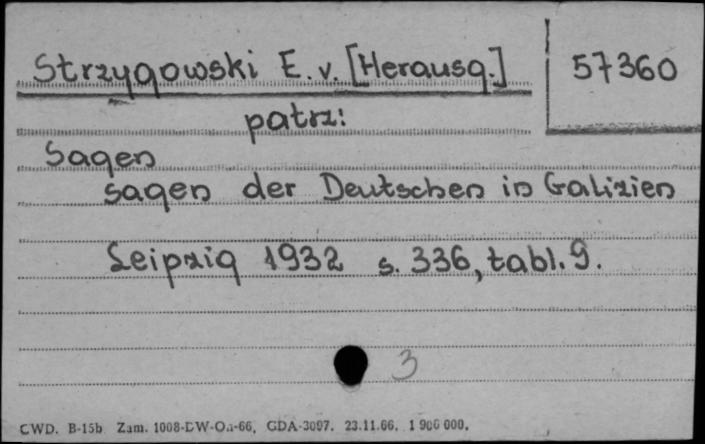 Strzygowski E. v. [Herausg.]
57360
patrz:
Sagen
Sagen der Deutschen in Galizien
Leipzig 1932 s. 336, tabl. 9.
3
CWD. B-15b Zam. 1008-DW-Oa-66, GDA-3097. 23.11.66. 1 900 000.